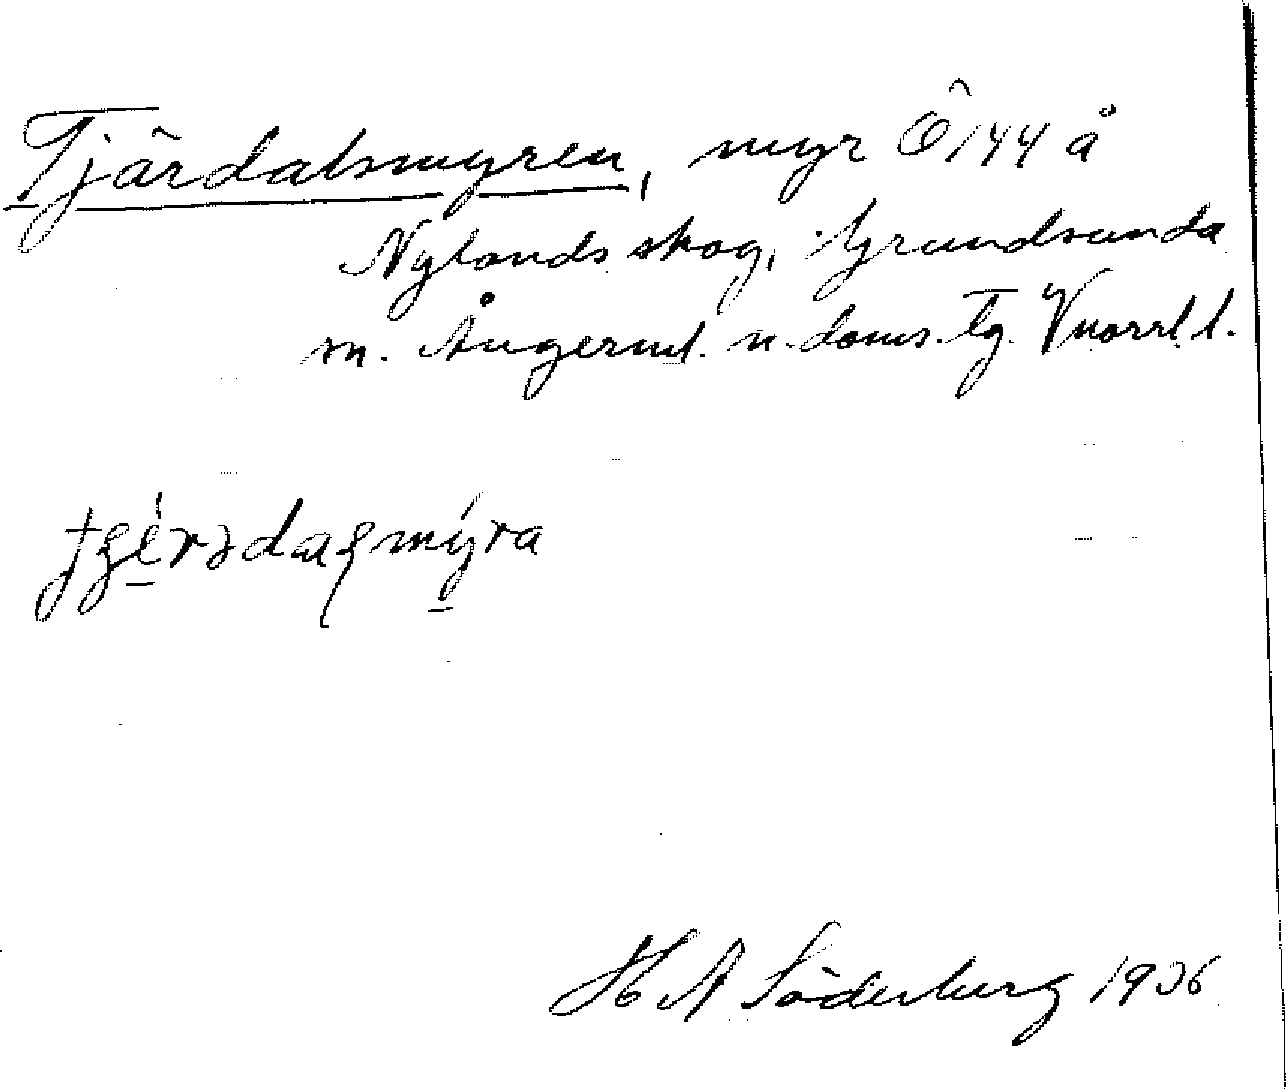 Tjärdalsmyren, myr Ö 144 å
Nylands skog, Grundsunda
sn. Ångerml. n. doms. tg. Vnorrl. l.
H A Söderberg 1936